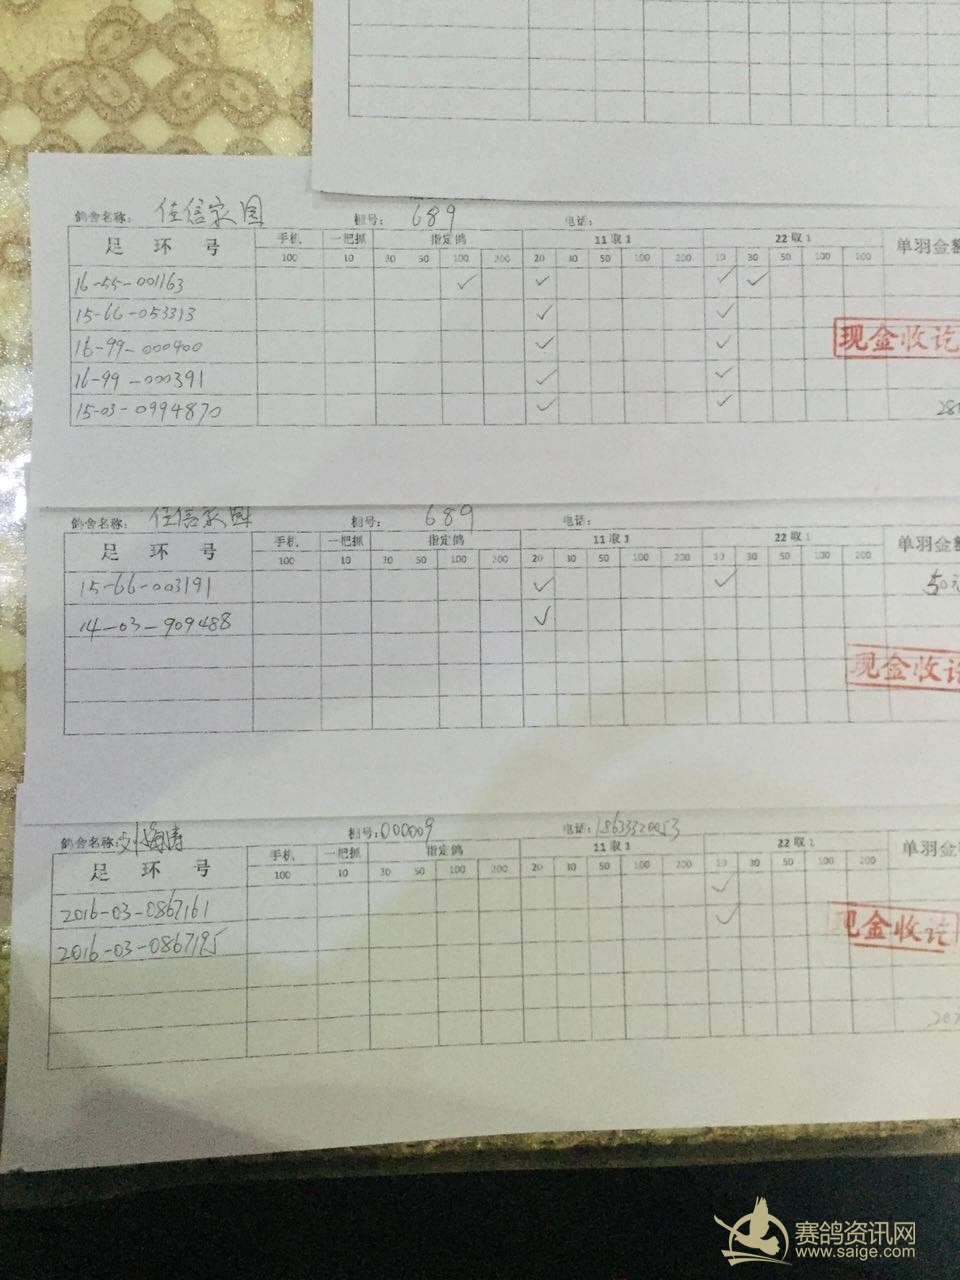 鸽舍名称: 佳信家园 棚号: 689 电话:
足 环 号 手机 一把抓 指定鸽 11取1 22取1 单羽金额
100 10 30 50 100 200 20 30 50 100 200 10 30 50 100 200
16-55-001163 ✓ ✓ ✓ ✓
15-66-053313 ✓ ✓
16-99-000400 ✓ ✓
现金收讫
16-99-000391 ✓ ✓
15-03-0994870 ✓ ✓
鸽舍名称: 佳信家园 棚号: 689 电话:
足 环 号 手机 一把抓 指定鸽 11取1 22取1 单羽金额
100 10 30 50 100 200 20 30 50 100 200 10 30 50 100 200
15-66-003191 ✓ ✓ 50元
14-03-909488 ✓
现金收讫
鸽舍名称: 刘海涛 棚号: 000009 电话: 18633320053
足 环 号 手机 一把抓 指定鸽 11取1 22取1 单羽金额
100 10 30 50 100 200 20 30 50 100 200 10 30 50 100 200
2016-03-0867161 ✓
2016-03-0867195 ✓
现金收讫
赛鸽资讯网
www.saige.com